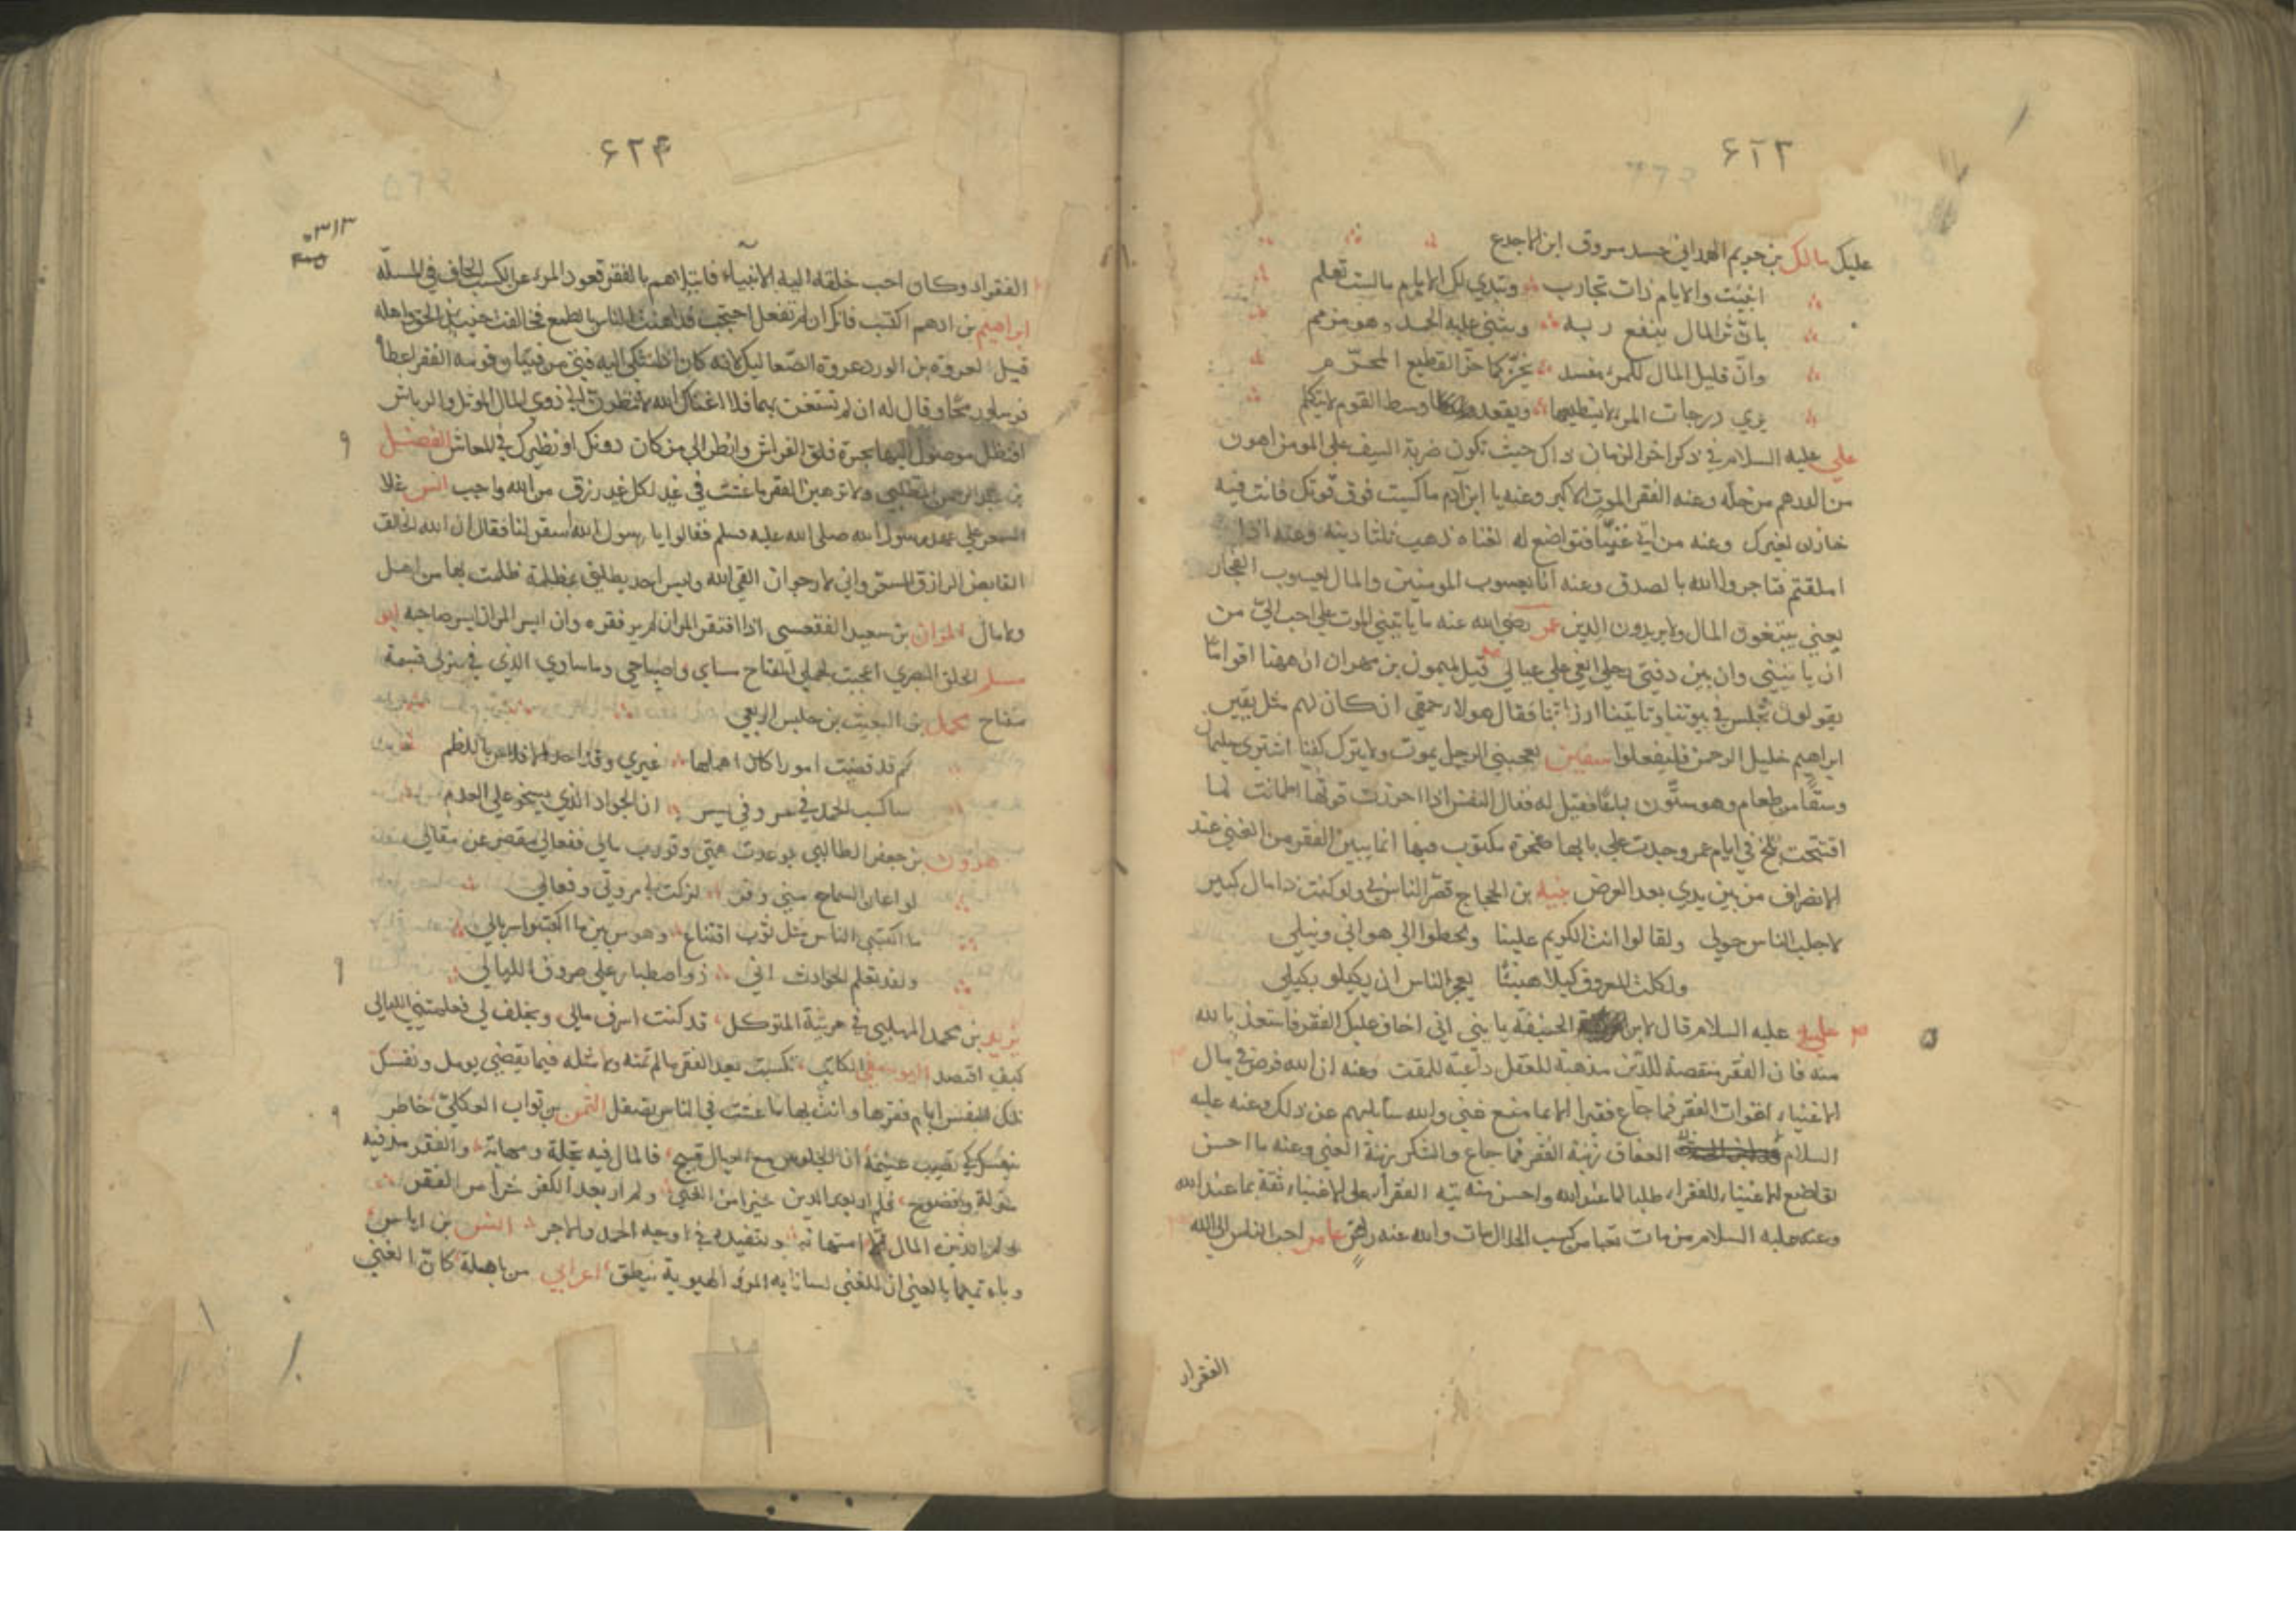 ۶۲۳
عليك مالك بن حريم الهمداني جد مسروق ابن الاجدع
انبئت والايام ذات تجارب وتبدي لك الايام مالست تعلم
بان ثراء المال ينفع ربه ويثني عليه الحمد وهو مذمم
وان قليل المال للمرء مفسد يحز كما حز القطيع المحرم
يرى درجات المرء لا يستطيعها ويقعد وسط القوم لا يتكلم
علي عليه السلام في ذكر اخر الزمان ذاك حيث تكون ضربة السيف على المومن اهون
من الدرهم من حله وعنه الفقر الموت الاكبر وعنه يا ابن آدم ما كسبت فوق قوتك فانت فيه
خازن لغيرك وعنه من اتى غنيا فتواضع له لغناه ذهب ثلثا دينه وعنه اذا
املقتم فتاجروا الله بالصدق وعنه انا يعسوب المومنين والمال يعسوب الفجار
يعني يتبعون المال ولا يريدون الدين عمر رضي الله عنه ما ياتيني الموت على احب الي من
ان ياتيني وان بين دفتي رحلي ابغي على عيالي قيل لميمون بن مهران ان ههنا اقواما
يقولون نجلس في بيوتنا وتاتينا ارزاقنا فقال هولاء حمقى ان كان لهم مثل يقين
ابراهيم خليل الرحمن فليفعلوا سفين يعجبني الرجل يموت ولا يترك كفنا اشترى سليمان
وسقا من طعام وهو ستون فقيل له فقال النفس اذا احرزت قوتها اطمانت لما
افتتحت بلخ في ايام عمر وجدت على بابها صخرة مكتوب فيها انما يبين الفقر من الغنى عند
الانصراف من بين يدي بعد العرض منبه بن الحجاج قصر الناس بي ولو كنت ذا مال كبير
لاجلب الناس حولي ولقالوا انت الكريم علينا ولحطوا الى هواي وميلي
ولكلت المعروف كيلا هنيئا يعجز الناس ان يكيلو بكيلي
علي عليه السلام قال لابن الحنيفة يا بني اني اخاف عليك الفقر فاستعذ بالله
منه فان الفقر منقصة للدين مذهبة للعقل داعية للمقت وعنه ان الله فرض في مال
الاغنياء اقوات الفقر فما جاع فقير الا بما منع غني والله سايلهم عن ذلك وعنه عليه
السلام العفاف زينة الفقر فما جاع والشكر زينة الغنى وعنه ما احسن
تواضع الاغنياء للفقراء طلبا لما عند الله واحسن منه تيه الفقراء على الاغنياء ثقة بما عند الله
وعنه عليه السلام من مات تعبا من كسب الحلال مات والله عنه راض عامر احب الناس الى الله
الفقراء
۶۲۴
۳۱۳
الفقراء وكان احب خلقه اليه الانبياء فابتلاهم بالفقر قعود المرء عن الكسب الحاف في المسئلة
ابراهيم بن ادهم اكتسب فانك ان لم تفعل احتجت فداهنت الناس بالطمع فخالفت حينئذ الحق واهله
قيل لعروة بن الورد عروة الصعاليك لانه كان اذا شكى اليه فتى من فتيان قومه الفقر اعطاه
فرسا ورمحا وقال له ان لم تستغن بهما فلا اغناك الله لا تنظرن الى ذوي المال الموثل والرياش
فتظل موصول بحسرة قلق الفراش وانظر الى من كان دونك او نظيرك في المعاش الفضل
بن عبد الرحمن المطلبي ولا ترهبن الفقر ما عشت في غد لكل غد رزق من الله واجب انس غلا
السعر على عهد رسول الله صلى الله عليه وسلم فقالوا يا رسول الله سعر لنا فقال ان الله الخالق
القابض الرازق المسعر واني لارجو ان القى الله وليس احد يطلبني بمظلمة ظلمت بها من اهل
ولا مال المرار بن سعيد الفقعسي اذا افتقر المرار لم ير فقره وان ايسر المرار ايسر صاحبه ابو
مسلم الخلق البصري اعجبت لحملي المفتاح مساي واصباحي وما ساوي الذي في منزلي قيمة
مفتاح محمد بن البعيث بن حلبس الربعي
كم قد قضيت امورا كان اهملها غيري وقد اخذ الافلاس بالكظم
ساكسب الحمد في عسر وفي يسر ان الجواد الذي يسخو على العدم
هرون بن جعفر الطالبي بوعدت همتي وقورب مالي ففعالي مقصر عن مقالي
لو اعان السماح مني وفر لزكت بي مروتي وفعالي
ما اكتسى الناس مثل ثوب اقتناع وهو من بين ما اكتسوا سربالي
ولقد تعلم الحوادث اني ذو اصطبار على صروف الليالي
يزيد بن محمد المهلبي في مرثية المتوكل قد كنت اسرف مالي ويخلف لي فعلمتني الليالي
كيف اقتصد الكاتب تكسبت بعد الفقر مالم تمنه ولا مثله فيما تقضى يومل ونفسك
تلك النفس ايام فقرها وانت بها ما عشت في الناس تصقل النمر بن تواب العكلي خاطر
بنفسك كي تصيب غنيمة ان الجلوس مع العيال قبيح فالمال فيه تجلة ومهابة والفقر مذ فيه
مذلة وفضوح فلم ار بعد الدين خيرا من الغنى ولم ار بعد الكفر شرا من الفقر
المال امتهانه وتنفيده في اوجه الحمد والاجر انس بن اياس
وباء تميما بالغنى ان للغنى لسانا به المرء الهيوبة ينطق اعرابي من باهلة كان الغني